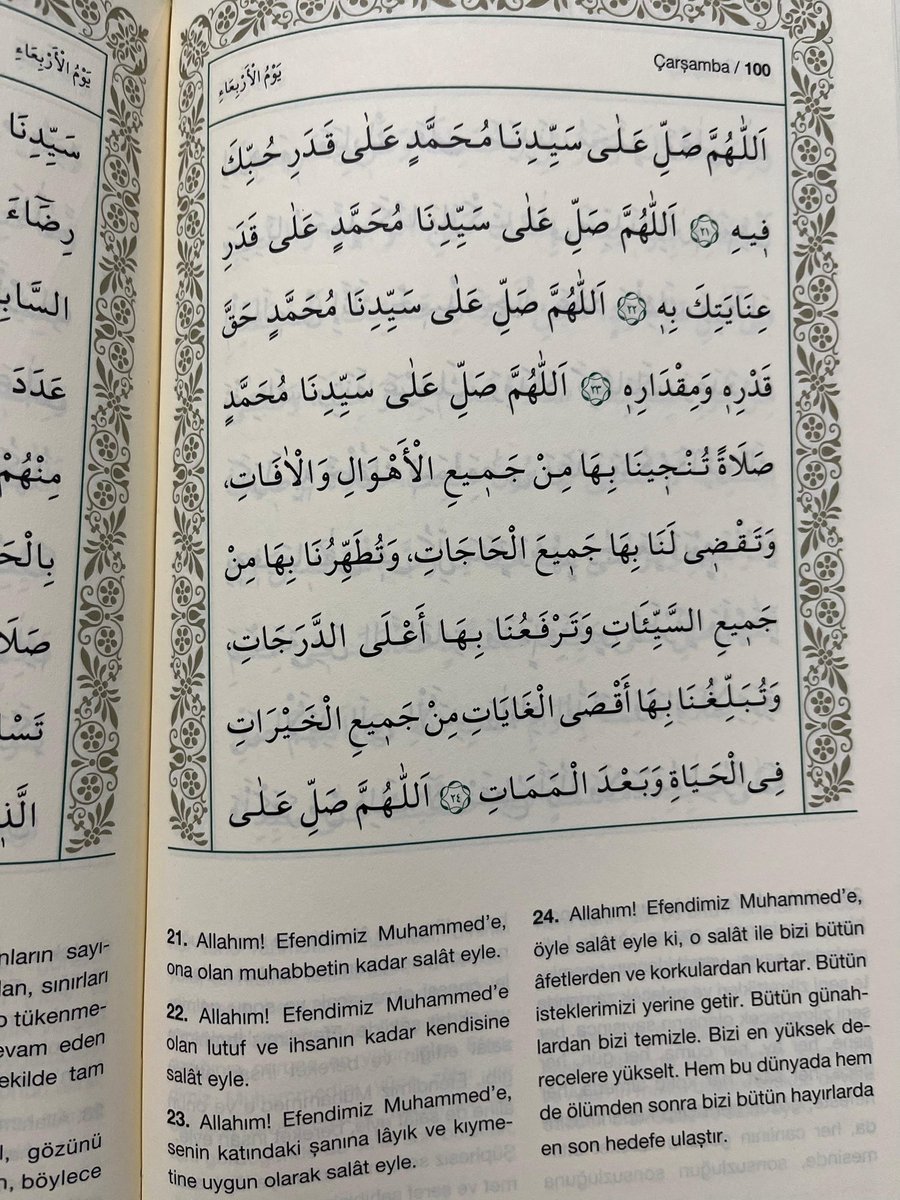 يَوْمُ الْأَرْبِعَاءِ
سَيِّدِنَا
رِضَٓاءَ
عَدَدَ
مِنْهُمْ
nların sayı-
lan, sınırları
o tükenme-
evam eden
ekilde tam
l, gözünü
n, böylece
يَوْمُ الْأَرْبِعَاءِ
Çarşamba / 100
اَللّٰهُمَّ صَلِّ عَلٰى سَيِّدِنَا مُحَمَّدٍ عَلٰى قَدَرِ حُبِّكَ
فِيهِ ﴿٢١﴾ اَللّٰهُمَّ صَلِّ عَلٰى سَيِّدِنَا مُحَمَّدٍ عَلٰى قَدَرِ
عِنَايَتِكَ بِهِ ﴿٢٢﴾ اَللّٰهُمَّ صَلِّ عَلٰى سَيِّدِنَا مُحَمَّدٍ حَقَّ
قَدْرِهِ وَمِقْدَارِهِ ﴿٢٣﴾ اَللّٰهُمَّ صَلِّ عَلٰى سَيِّدِنَا مُحَمَّدٍ
صَلَاةً تُنْجِينَا بِهَا مِنْ جَمِيعِ الْأَهْوَالِ وَالْاٰفَاتِ،
وَتَقْضِى لَنَا بِهَا جَمِيعَ الْحَاجَاتِ، وَتُطَهِّرُنَا بِهَا مِنْ
جَمِيعِ السَّيِّئَاتِ وَتَرْفَعُنَا بِهَا أَعْلَى الدَّرَجَاتِ،
وَتُبَلِّغُنَا بِهَا أَقْصَى الْغَايَاتِ مِنْ جَمِيعِ الْخَيْرَاتِ
فِى الْحَيَاةِ وَبَعْدَ الْمَمَاتِ ﴿٢٤﴾ اَللّٰهُمَّ صَلِّ عَلٰى
21. Allahım! Efendimiz Muhammed’e,
ona olan muhabbetin kadar salât eyle.
22. Allahım! Efendimiz Muhammed’e
olan lutuf ve ihsanın kadar kendisine
salât eyle.
23. Allahım! Efendimiz Muhammed’e,
senin katındaki şanına lâyık ve kıyme-
tine uygun olarak salât eyle.
24. Allahım! Efendimiz Muhammed’e,
öyle salât eyle ki, o salât ile bizi bütün
âfetlerden ve korkulardan kurtar. Bütün
isteklerimizi yerine getir. Bütün günah-
lardan bizi temizle. Bizi en yüksek de-
recelere yükselt. Hem bu dünyada hem
de ölümden sonra bizi bütün hayırlarda
en son hedefe ulaştır.